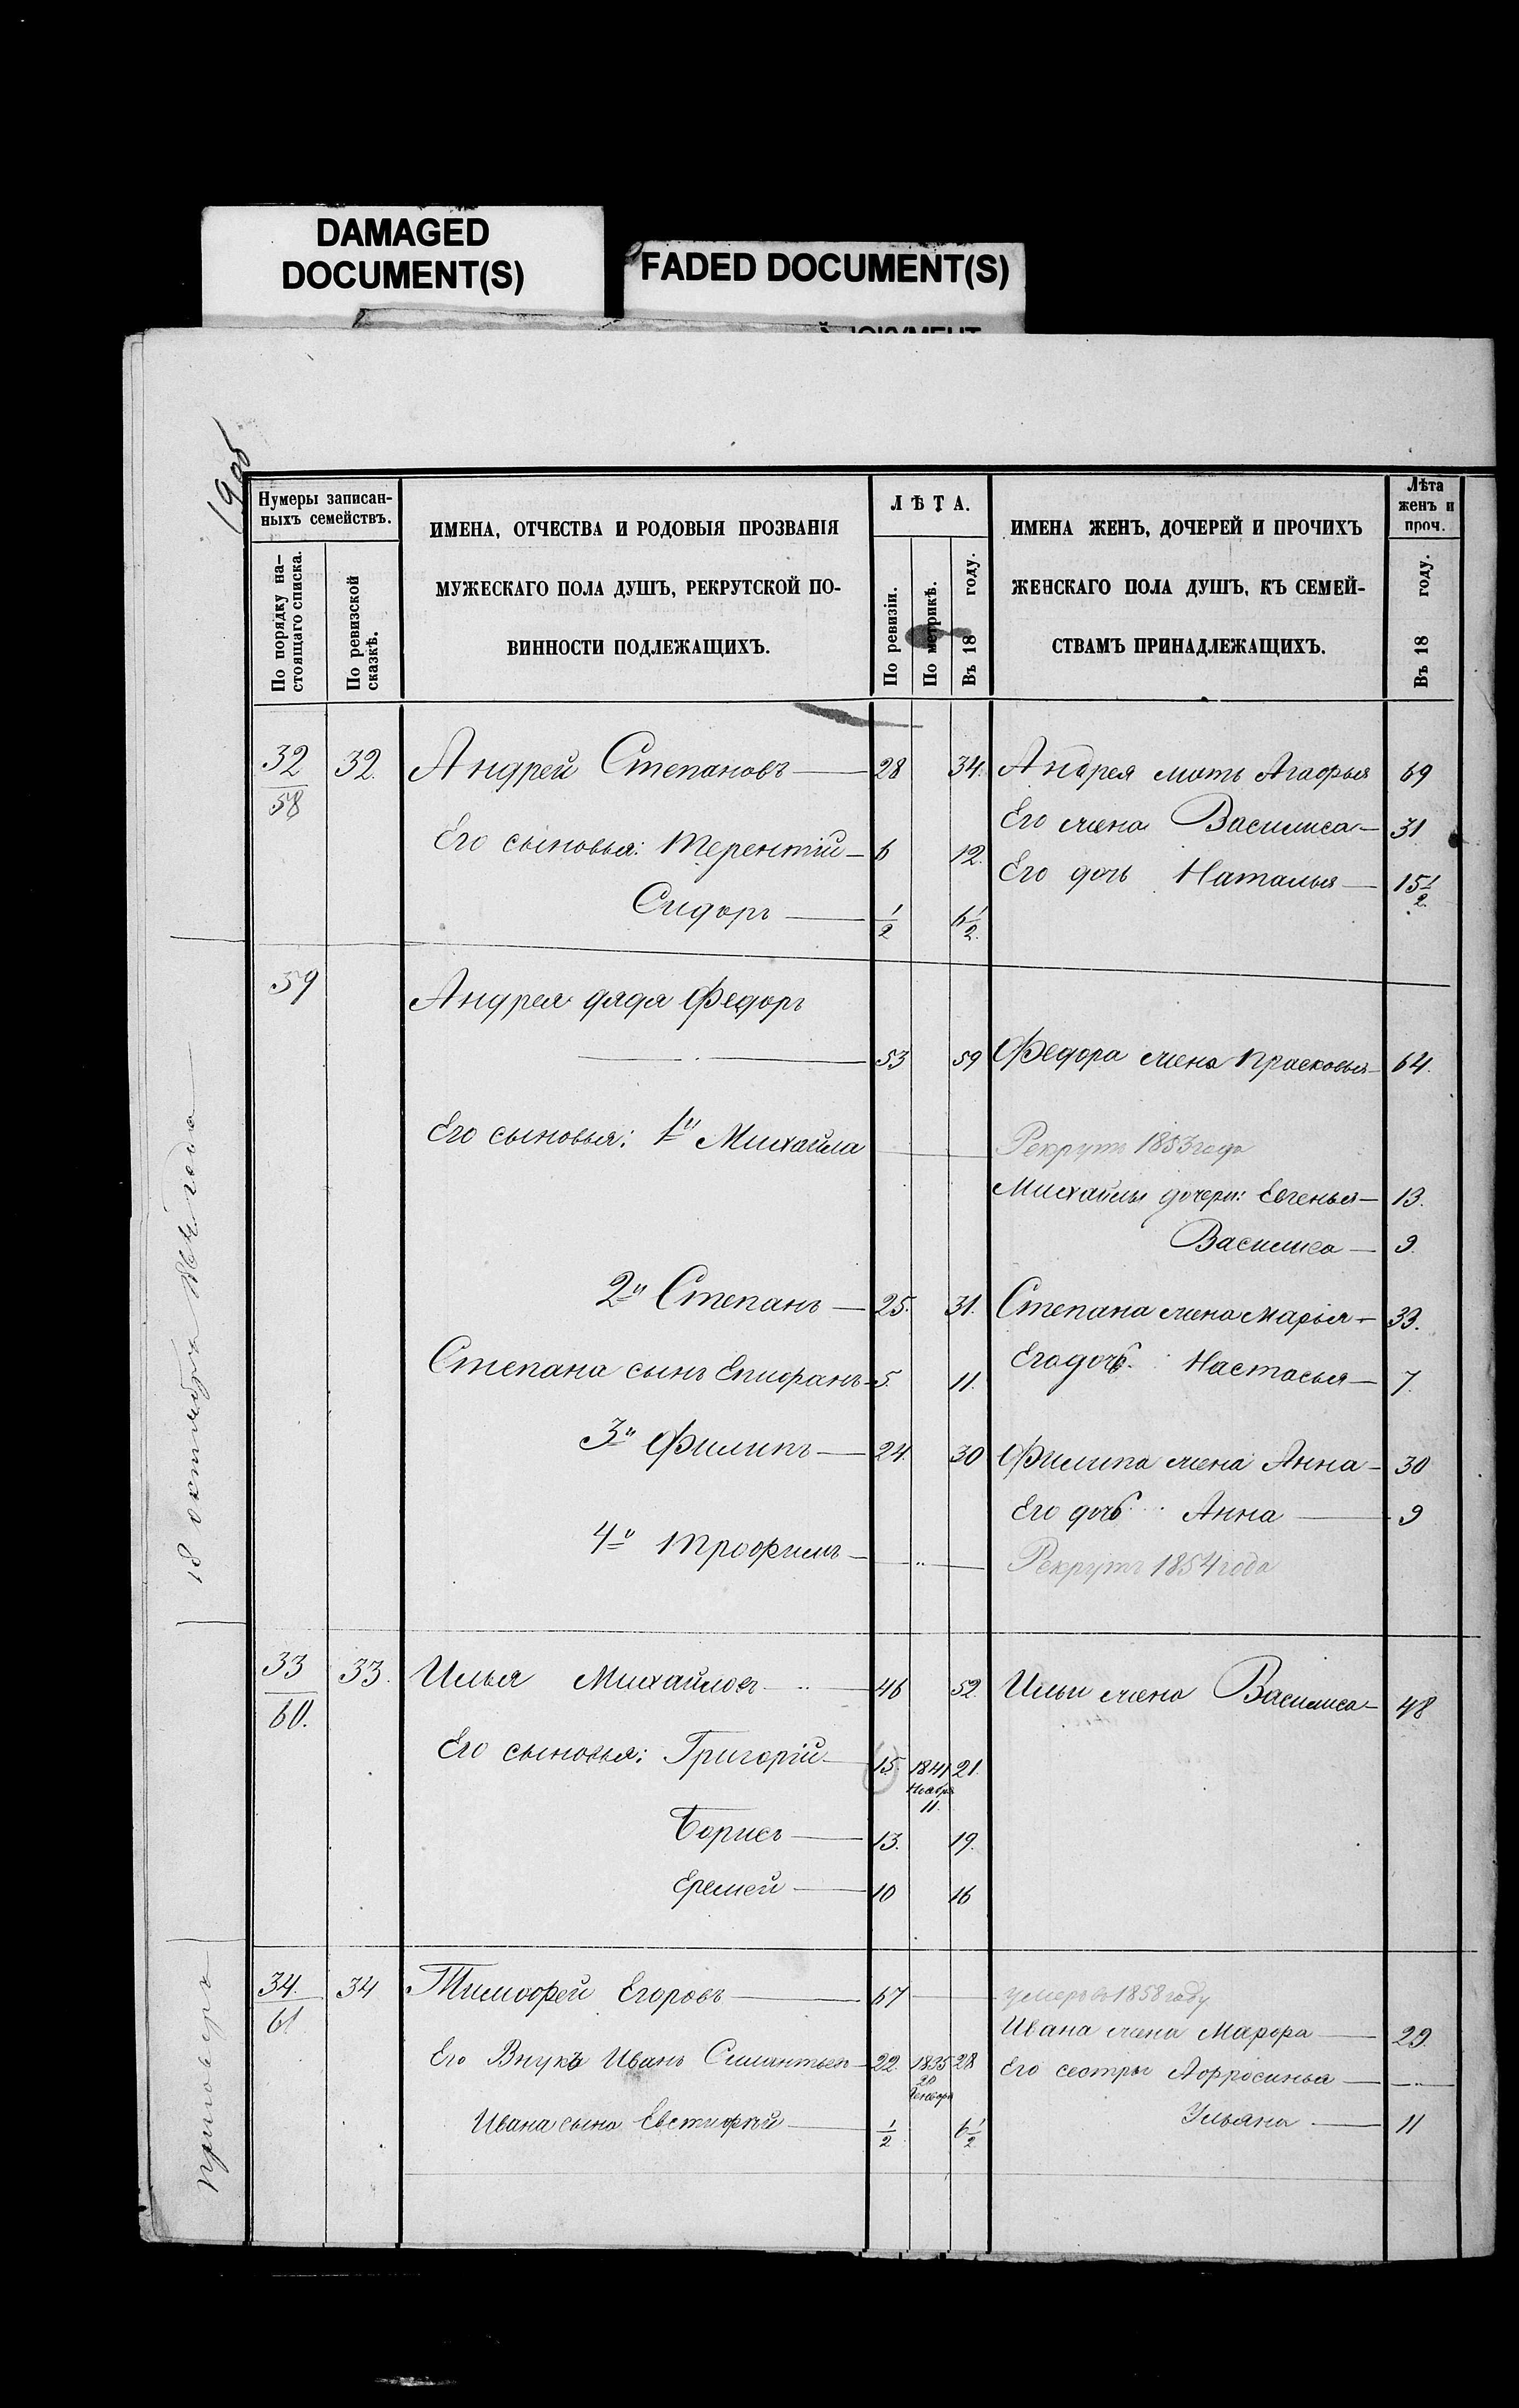 DAMAGED
DOCUMENT(S)
FADED DOCUMENT(S)
Нумеры записан-
ныхъ семействъ.
По порядку на-
стоящаго списка.
По ревизской
сказкѣ.
ИМЕНА, ОТЧЕСТВА И РОДОВЫЯ ПРОЗВАНІЯ
МУЖЕСКАГО ПОЛА ДУШЪ, РЕКРУТСКОЙ ПО-
ВИННОСТИ ПОДЛЕЖАЩИХЪ.
ЛѢТА.
По ревизіи.
По метрикѣ.
Въ 18 году.
ИМЕНА ЖЕНЪ, ДОЧЕРЕЙ И ПРОЧИХЪ
ЖЕНСКАГО ПОЛА ДУШЪ, КЪ СЕМЕЙ-
СТВАМЪ ПРИНАДЛЕЖАЩИХЪ.
Лѣта
женъ и
проч.
Въ 18 году.
32 32. Андрей Степановъ 28 34. Андрея мать Агафья 69
58
Его жена Василиса 31
Его сыновья: Терентій 6 12.
Его дочь Наталья 15 1/2
Сидоръ 1/2 6 1/2
59 Андрея дядя Федоръ
53 59 Федора жена Прасковья 64.
Его сыновья: 1й Михайла Рекрутъ 1853 года
Михайлы дочери: Евгенья 13.
Василиса 9.
2й Степанъ 25. 31. Степана жена Марья 33.
Степана сынъ Епифанъ 5. 11. Его дочь Настасья 7.
3й Филипъ 24. 30 Филипа жена Анна 30
Его дочь Анна 9
4й Трофимъ Рекрутъ 1854 года
33 33. Илья Михайловъ 46 52. Ильи жена Василиса 48
60.
Его сыновья: Григорій 15. 1841 21.
Ноября
11.
Борисъ 13. 19.
Еремей 10 16
34. 34 Тимофей Егоровъ 67 умеръ въ 1858 году
61
Ивана жена Марфа 29.
Его Внукъ Иванъ 22. 1835 28 Его сестры Афросинья
20
Генваря
Ивана сынъ Евстифѣй 1/2 6 1/2 Ульяна 11
18 октября года